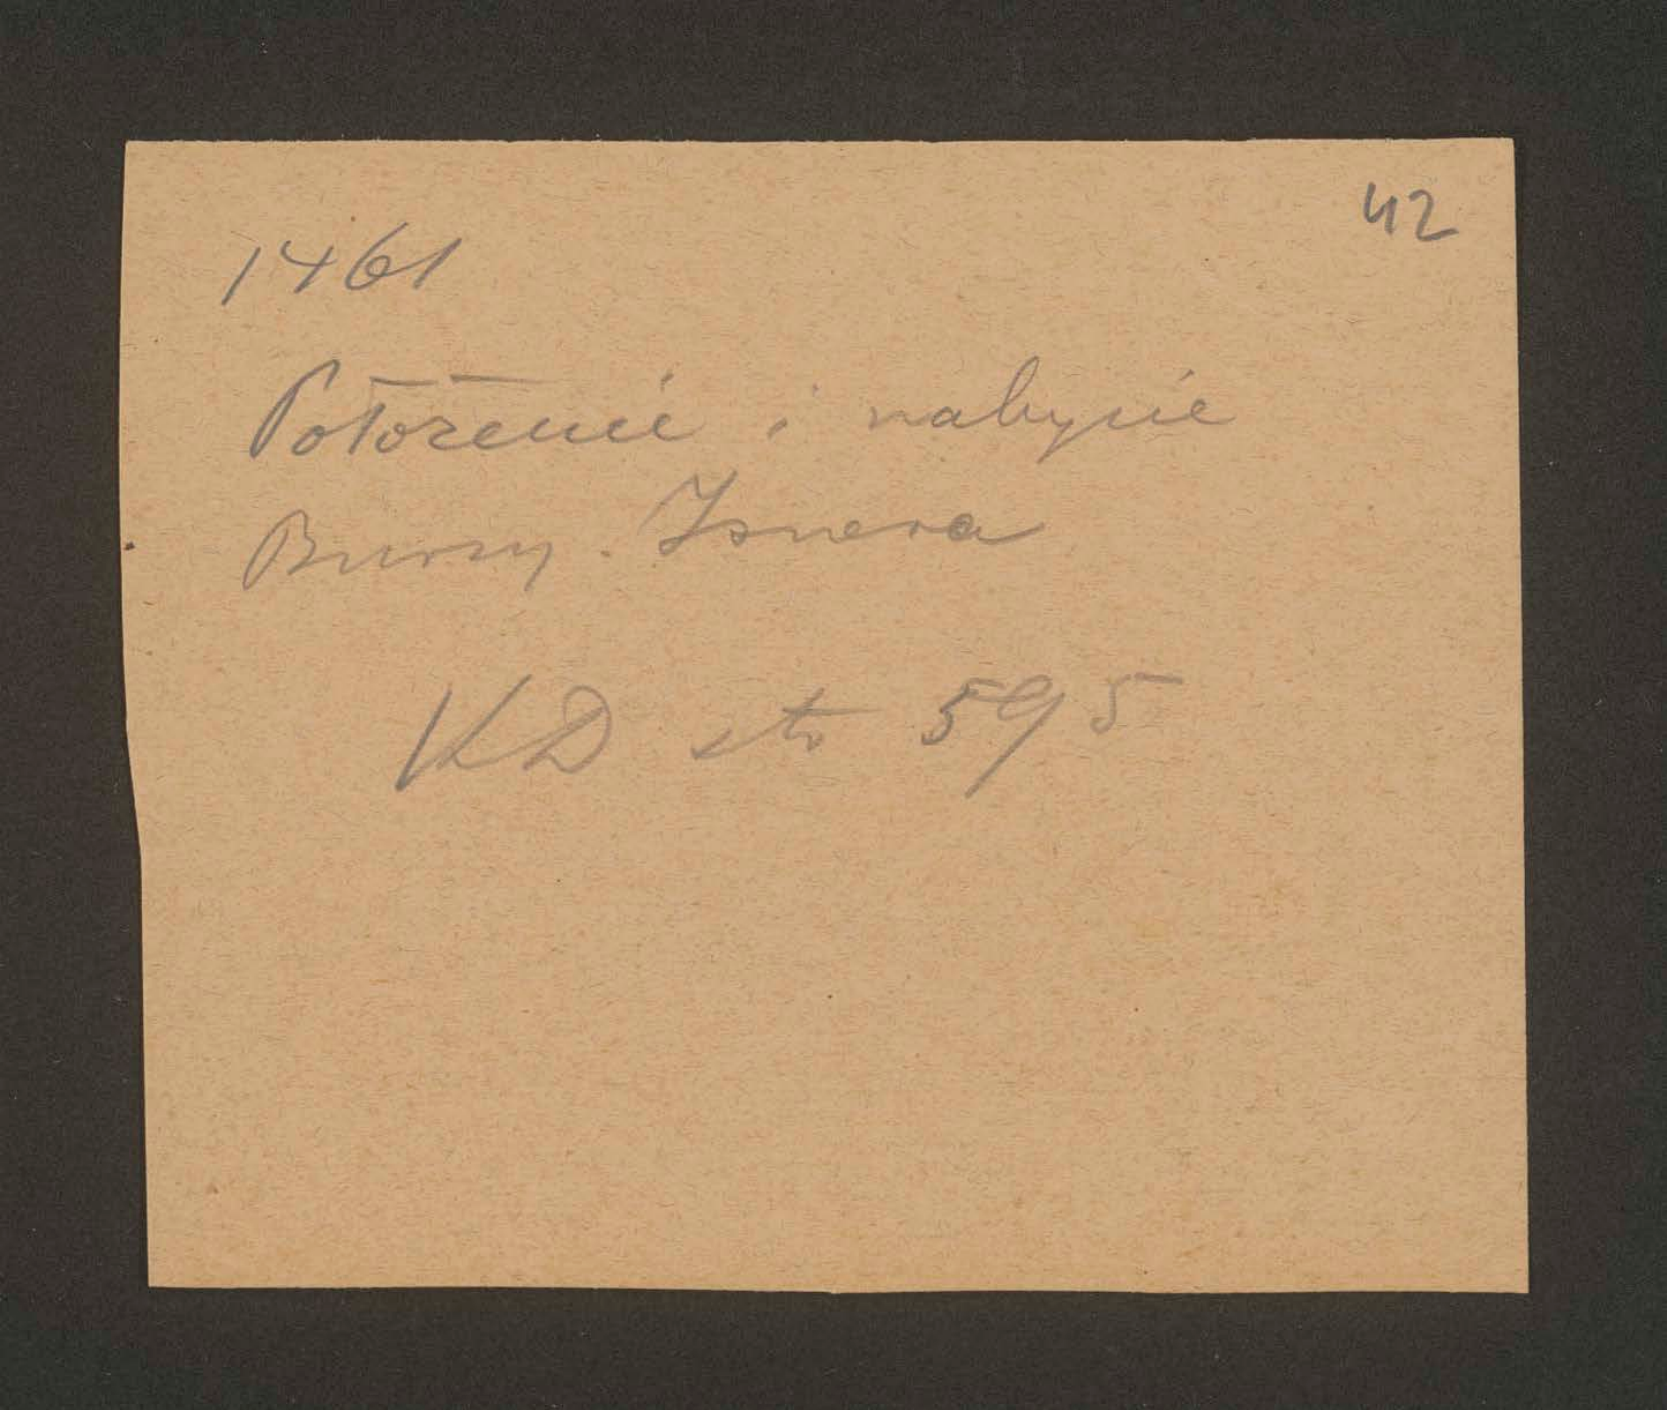 42
1461
Położenie i nabycie
Bursy. Isnera
KD str 595